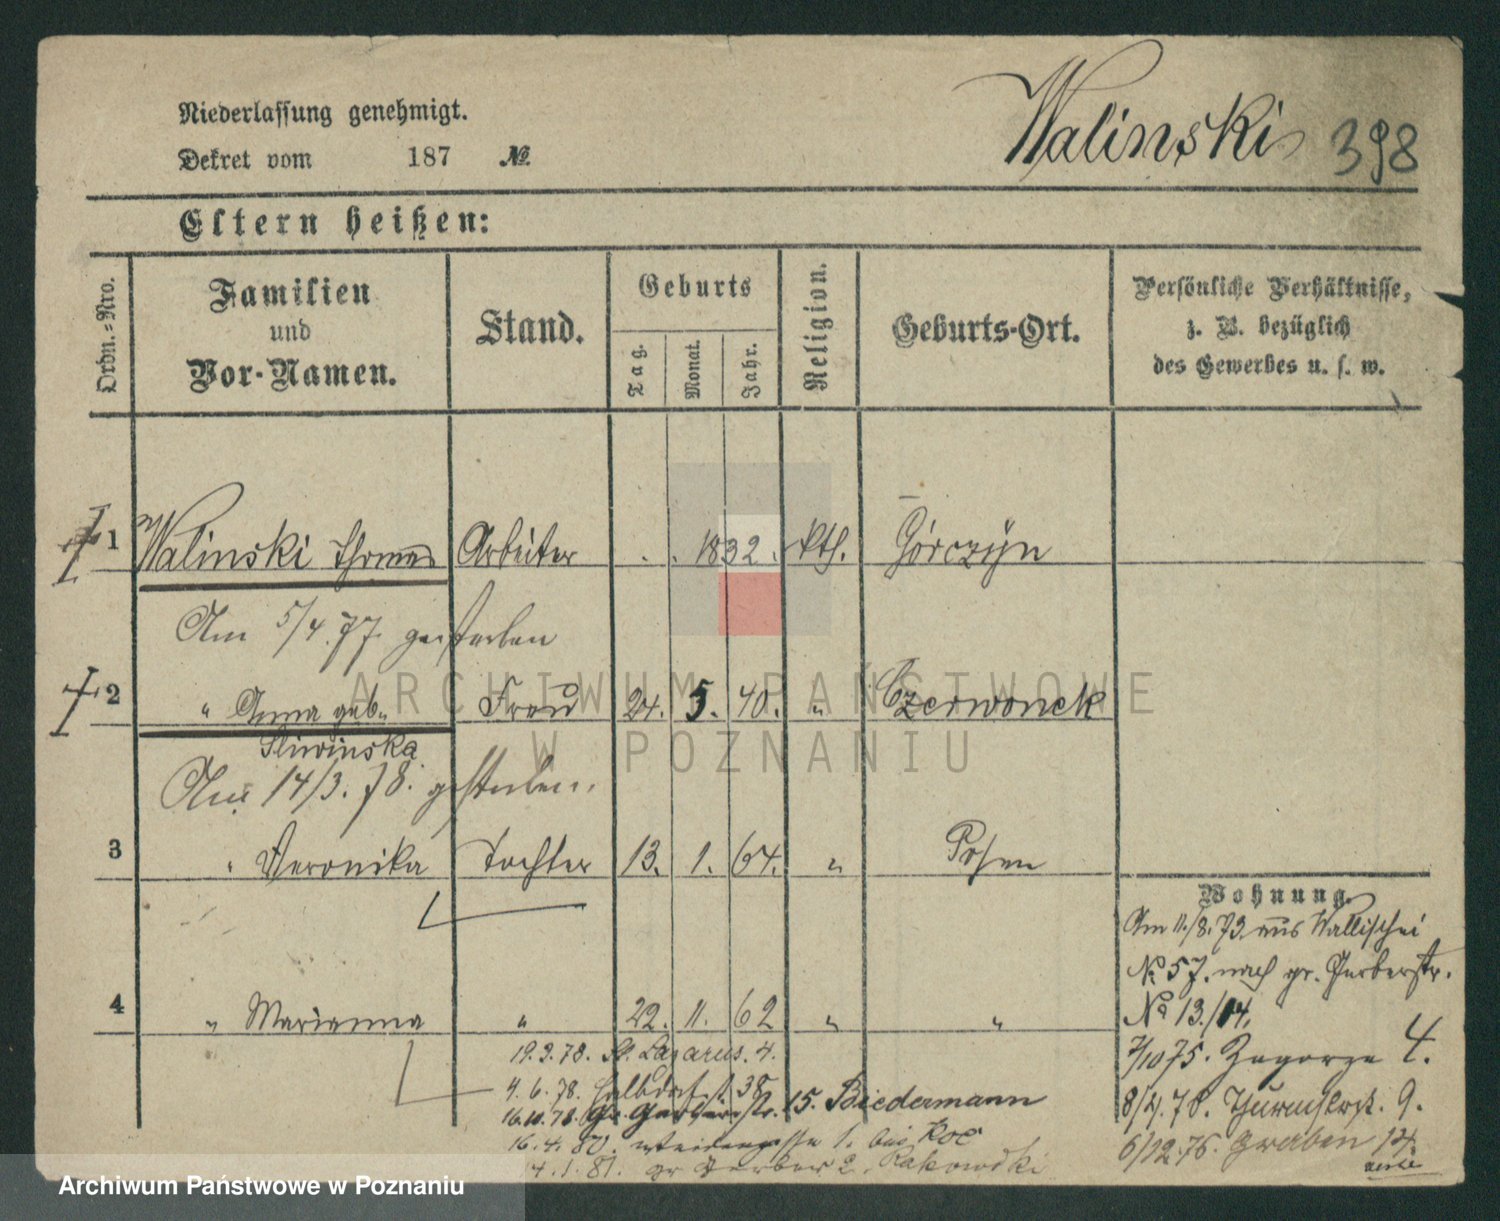 Niederlassung genehmigt.
Dekret vom 187 №
Walinski 398
Eltern heißen:
Ordn.=Nro.
Familien
und
Vor-Namen.
Stand.
Geburts
Tag.
Monat.
Jahr.
Religion.
Geburts-Ort.
Persönliche Verhältnisse,
z. B. bezüglich
des Gewerbes u. s. w.
1 Walinski Thomas Arbeiter . . 1832. kth. Górczyn
Am 5/4.77. gestorben
2 " Anna geb. Frau 24. 5. 40. " Czerwonek
Sliwinska
Am 14/3.78. gestorben.
3 " Veronika Tochter 13. 1. 64. " Posen
Wohnung.
Am 11./8.73. aus Wallischei
№ 57. nach gr. Gerberstr.
№ 13./14.
4 " Marianna " 22. 11. 62 " "
7/10 75. Zagorze 4.
8/4.76. Thurmstraß. 9.
6/12.76. Graben
19.3.78. St. Lazarus. 4.
4.6.78. Halbdorfst. 38
16.10.78. gr. Gerberstr. 15. Biedermann
16.4.80. 1. bei
4.1.81. gr Gerber 2. Rakowski
ARCHIWUM PAŃSTWOWE
W POZNANIU
Archiwum Państwowe w Poznaniu